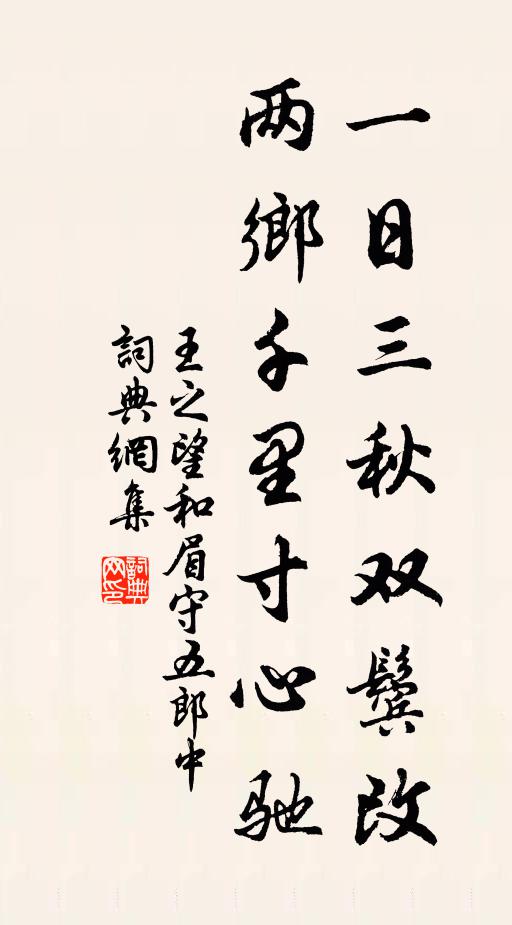 一日三秋双鬓改
两鄉千里寸心驰
王之望和眉守五郎中
詞典網集
詞典网印